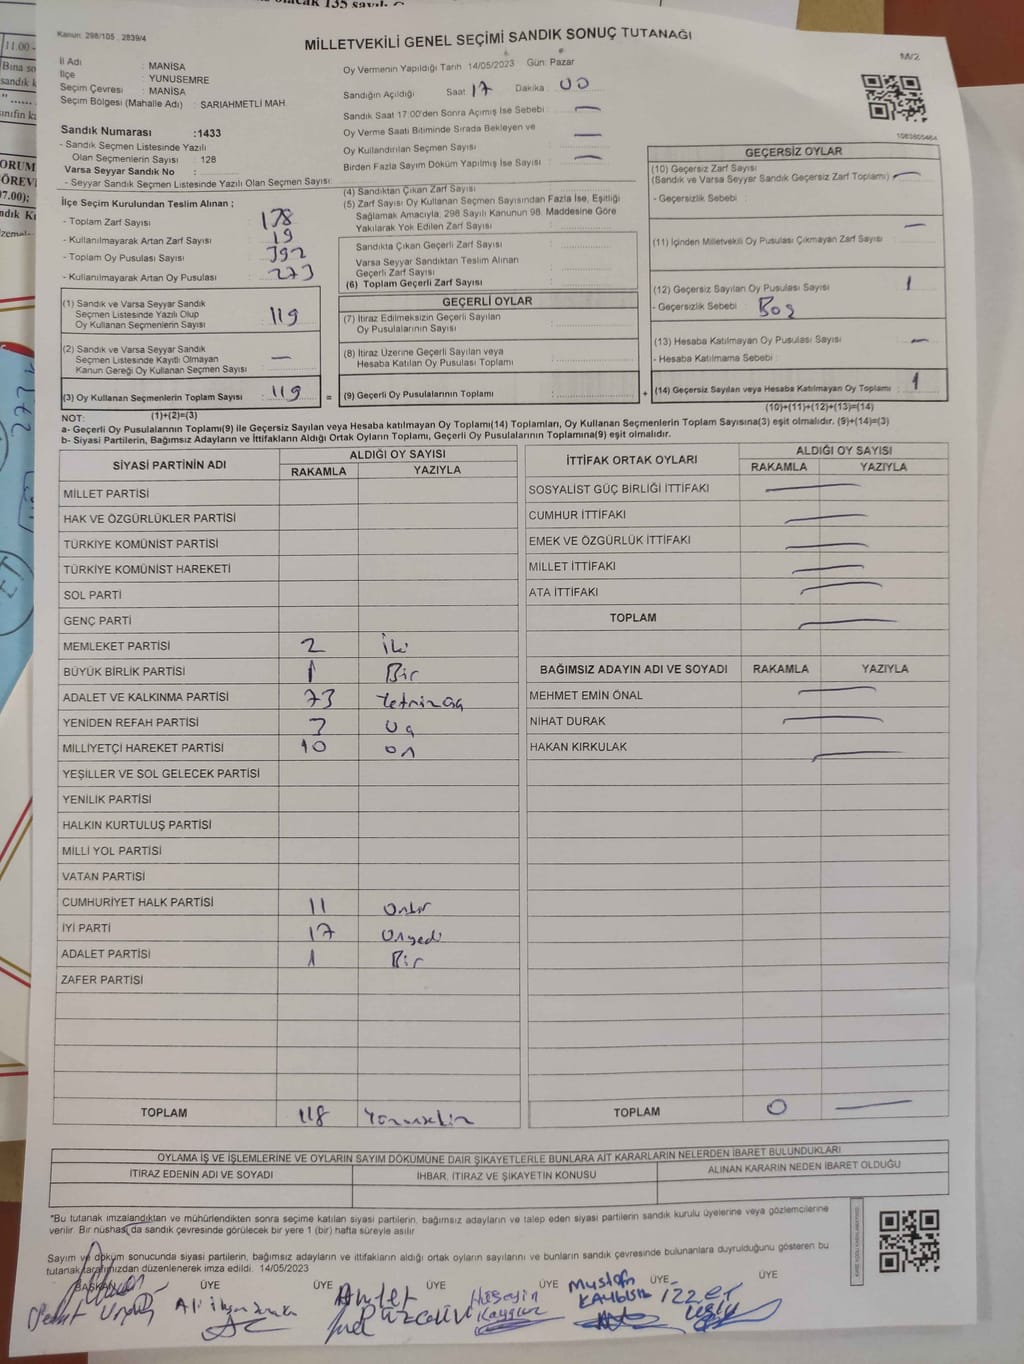 11.00 -
Bina so
sandık k
ORUM
GÖREV
7.00);
ndık K
Kanun: 298/105 2839/4
MİLLETVEKİLİ GENEL SEÇİMİ SANDIK SONUÇ TUTANAĞI
M/2
İl Adı : MANİSA
İlçe : YUNUSEMRE
Seçim Çevresi : MANİSA
Seçim Bölgesi (Mahalle Adı) : SARIAHMETLİ MAH.
Oy Vermenin Yapıldığı Tarih 14/05/2023 Gün: Pazar
Sandığın Açıldığı Saat 17 Dakika 00
Sandık Saat 17:00'den Sonra Açımış İse Sebebi : —
Oy Verme Saati Bitiminde Sırada Bekleyen ve
Oy Kullandırılan Seçmen Sayısı : —
Birden Fazla Sayım Döküm Yapılmış İse Sayısı : —
1083805464
Sandık Numarası :1433
- Sandık Seçmen Listesinde Yazılı
Olan Seçmenlerin Sayısı : 128
Varsa Seyyar Sandık No :
- Seyyar Sandık Seçmen Listesinde Yazılı Olan Seçmen Sayısı:
İlçe Seçim Kurulundan Teslim Alınan ;
- Toplam Zarf Sayısı : 138
- Kullanılmayarak Artan Zarf Sayısı : 19
- Toplam Oy Pusulası Sayısı : 392
- Kullanılmayarak Artan Oy Pusulası : 273
(1) Sandık ve Varsa Seyyar Sandık
Seçmen Listesinde Yazılı Olup
Oy Kullanan Seçmenlerin Sayısı : 119
(2) Sandık ve Varsa Seyyar Sandık
Seçmen Listesinde Kayıtlı Olmayan
Kanun Gereği Oy Kullanan Seçmen Sayısı : —
(3) Oy Kullanan Seçmenlerin Toplam Sayısı : 119 =
(1)+(2)=(3)
(4) Sandıktan Çıkan Zarf Sayısı :
(5) Zarf Sayısı Oy Kullanan Seçmen Sayısından Fazla İse, Eşitliği
Sağlamak Amacıyla, 298 Sayılı Kanunun 98. Maddesine Göre
Yakılarak Yok Edilen Zarf Sayısı :
Sandıkta Çıkan Geçerli Zarf Sayısı :
Varsa Seyyar Sandıktan Teslim Alınan
Geçerli Zarf Sayısı :
(6) Toplam Geçerli Zarf Sayısı :
GEÇERLİ OYLAR
(7) İtiraz Edilmeksizin Geçerli Sayılan
Oy Pusulalarının Sayısı :
(8) İtiraz Üzerine Geçerli Sayılan veya
Hesaba Katılan Oy Pusulası Toplamı :
(9) Geçerli Oy Pusulalarının Toplamı : +
GEÇERSİZ OYLAR
(10) Geçersiz Zarf Sayısı
(Sandık ve Varsa Seyyar Sandık Geçersiz Zarf Toplamı) : —
- Geçersizlik Sebebi :
(11) İçinden Milletvekili Oy Pusulası Çıkmayan Zarf Sayısı : —
(12) Geçersiz Sayılan Oy Pusulası Sayısı : 1
- Geçersizlik Sebebi : Boş
(13) Hesaba Katılmayan Oy Pusulası Sayısı : —
- Hesaba Katılmama Sebebi :
(14) Geçersiz Sayılan veya Hesaba Katılmayan Oy Toplamı : 1
(10)+(11)+(12)+(13)=(14)
NOT:
a- Geçerli Oy Pusulalarının Toplamı(9) ile Geçersiz Sayılan veya Hesaba katılmayan Oy Toplamı(14) Toplamları, Oy Kullanan Seçmenlerin Toplam Sayısına(3) eşit olmalıdır. (9)+(14)=(3)
b- Siyasi Partilerin, Bağımsız Adayların ve İttifakların Aldığı Ortak Oyların Toplamı, Geçerli Oy Pusulalarının Toplamına(9) eşit olmalıdır.
SİYASİ PARTİNİN ADI
ALDIĞI OY SAYISI
RAKAMLA YAZIYLA
MİLLET PARTİSİ
HAK VE ÖZGÜRLÜKLER PARTİSİ
TÜRKİYE KOMÜNİST PARTİSİ
TÜRKİYE KOMÜNİST HAREKETİ
SOL PARTİ
GENÇ PARTİ
MEMLEKET PARTİSİ 2 İki
BÜYÜK BİRLİK PARTİSİ 1 Bir
ADALET VE KALKINMA PARTİSİ 73
YENİDEN REFAH PARTİSİ 3 Üç
MİLLİYETÇİ HAREKET PARTİSİ 10 on
YEŞİLLER VE SOL GELECEK PARTİSİ
YENİLİK PARTİSİ
HALKIN KURTULUŞ PARTİSİ
MİLLİ YOL PARTİSİ
VATAN PARTİSİ
CUMHURİYET HALK PARTİSİ 11 Onbir
İYİ PARTİ 17 Onyedi
ADALET PARTİSİ 1 Bir
ZAFER PARTİSİ
TOPLAM 118
İTTİFAK ORTAK OYLARI
ALDIĞI OY SAYISI
RAKAMLA YAZIYLA
SOSYALİST GÜÇ BİRLİĞİ İTTİFAKI —
CUMHUR İTTİFAKI —
EMEK VE ÖZGÜRLÜK İTTİFAKI —
MİLLET İTTİFAKI —
ATA İTTİFAKI —
TOPLAM —
BAĞIMSIZ ADAYIN ADI VE SOYADI RAKAMLA YAZIYLA
MEHMET EMİN ÖNAL —
NİHAT DURAK —
HAKAN KIRKULAK —
TOPLAM 0 —
OYLAMA İŞ VE İŞLEMLERİNE VE OYLARIN SAYIM DÖKÜMÜNE DAİR ŞİKAYETLERLE BUNLARA AİT KARARLARIN NELERDEN İBARET BULUNDUKLARI
İTİRAZ EDENİN ADI VE SOYADI İHBAR, İTİRAZ VE ŞİKAYETİN KONUSU ALINAN KARARIN NEDEN İBARET OLDUĞU
"Bu tutanak imzalandıktan ve mühürlendikten sonra seçime katılan siyasi partilerin, bağımsız adayların ve talep eden siyasi partilerin sandık kurulu üyelerine veya gözlemcilerine
verilir. Bir nüshası da sandık çevresinde görülecek bir yere 1 (bir) hafta süreyle asılır
Sayım ve döküm sonucunda siyasi partilerin, bağımsız adayların ve ittifakların aldığı ortak oyların sayılarını ve bunların sandık çevresinde bulunanlara duyrulduğunu gösteren bu
tutanak tarafımızdan düzenlenerek imza edildi. 14/05/2023
BAŞKAN ÜYE ÜYE ÜYE ÜYE ÜYE ÜYE
Hüseyin Mustafa İZZET
Kaygusuz